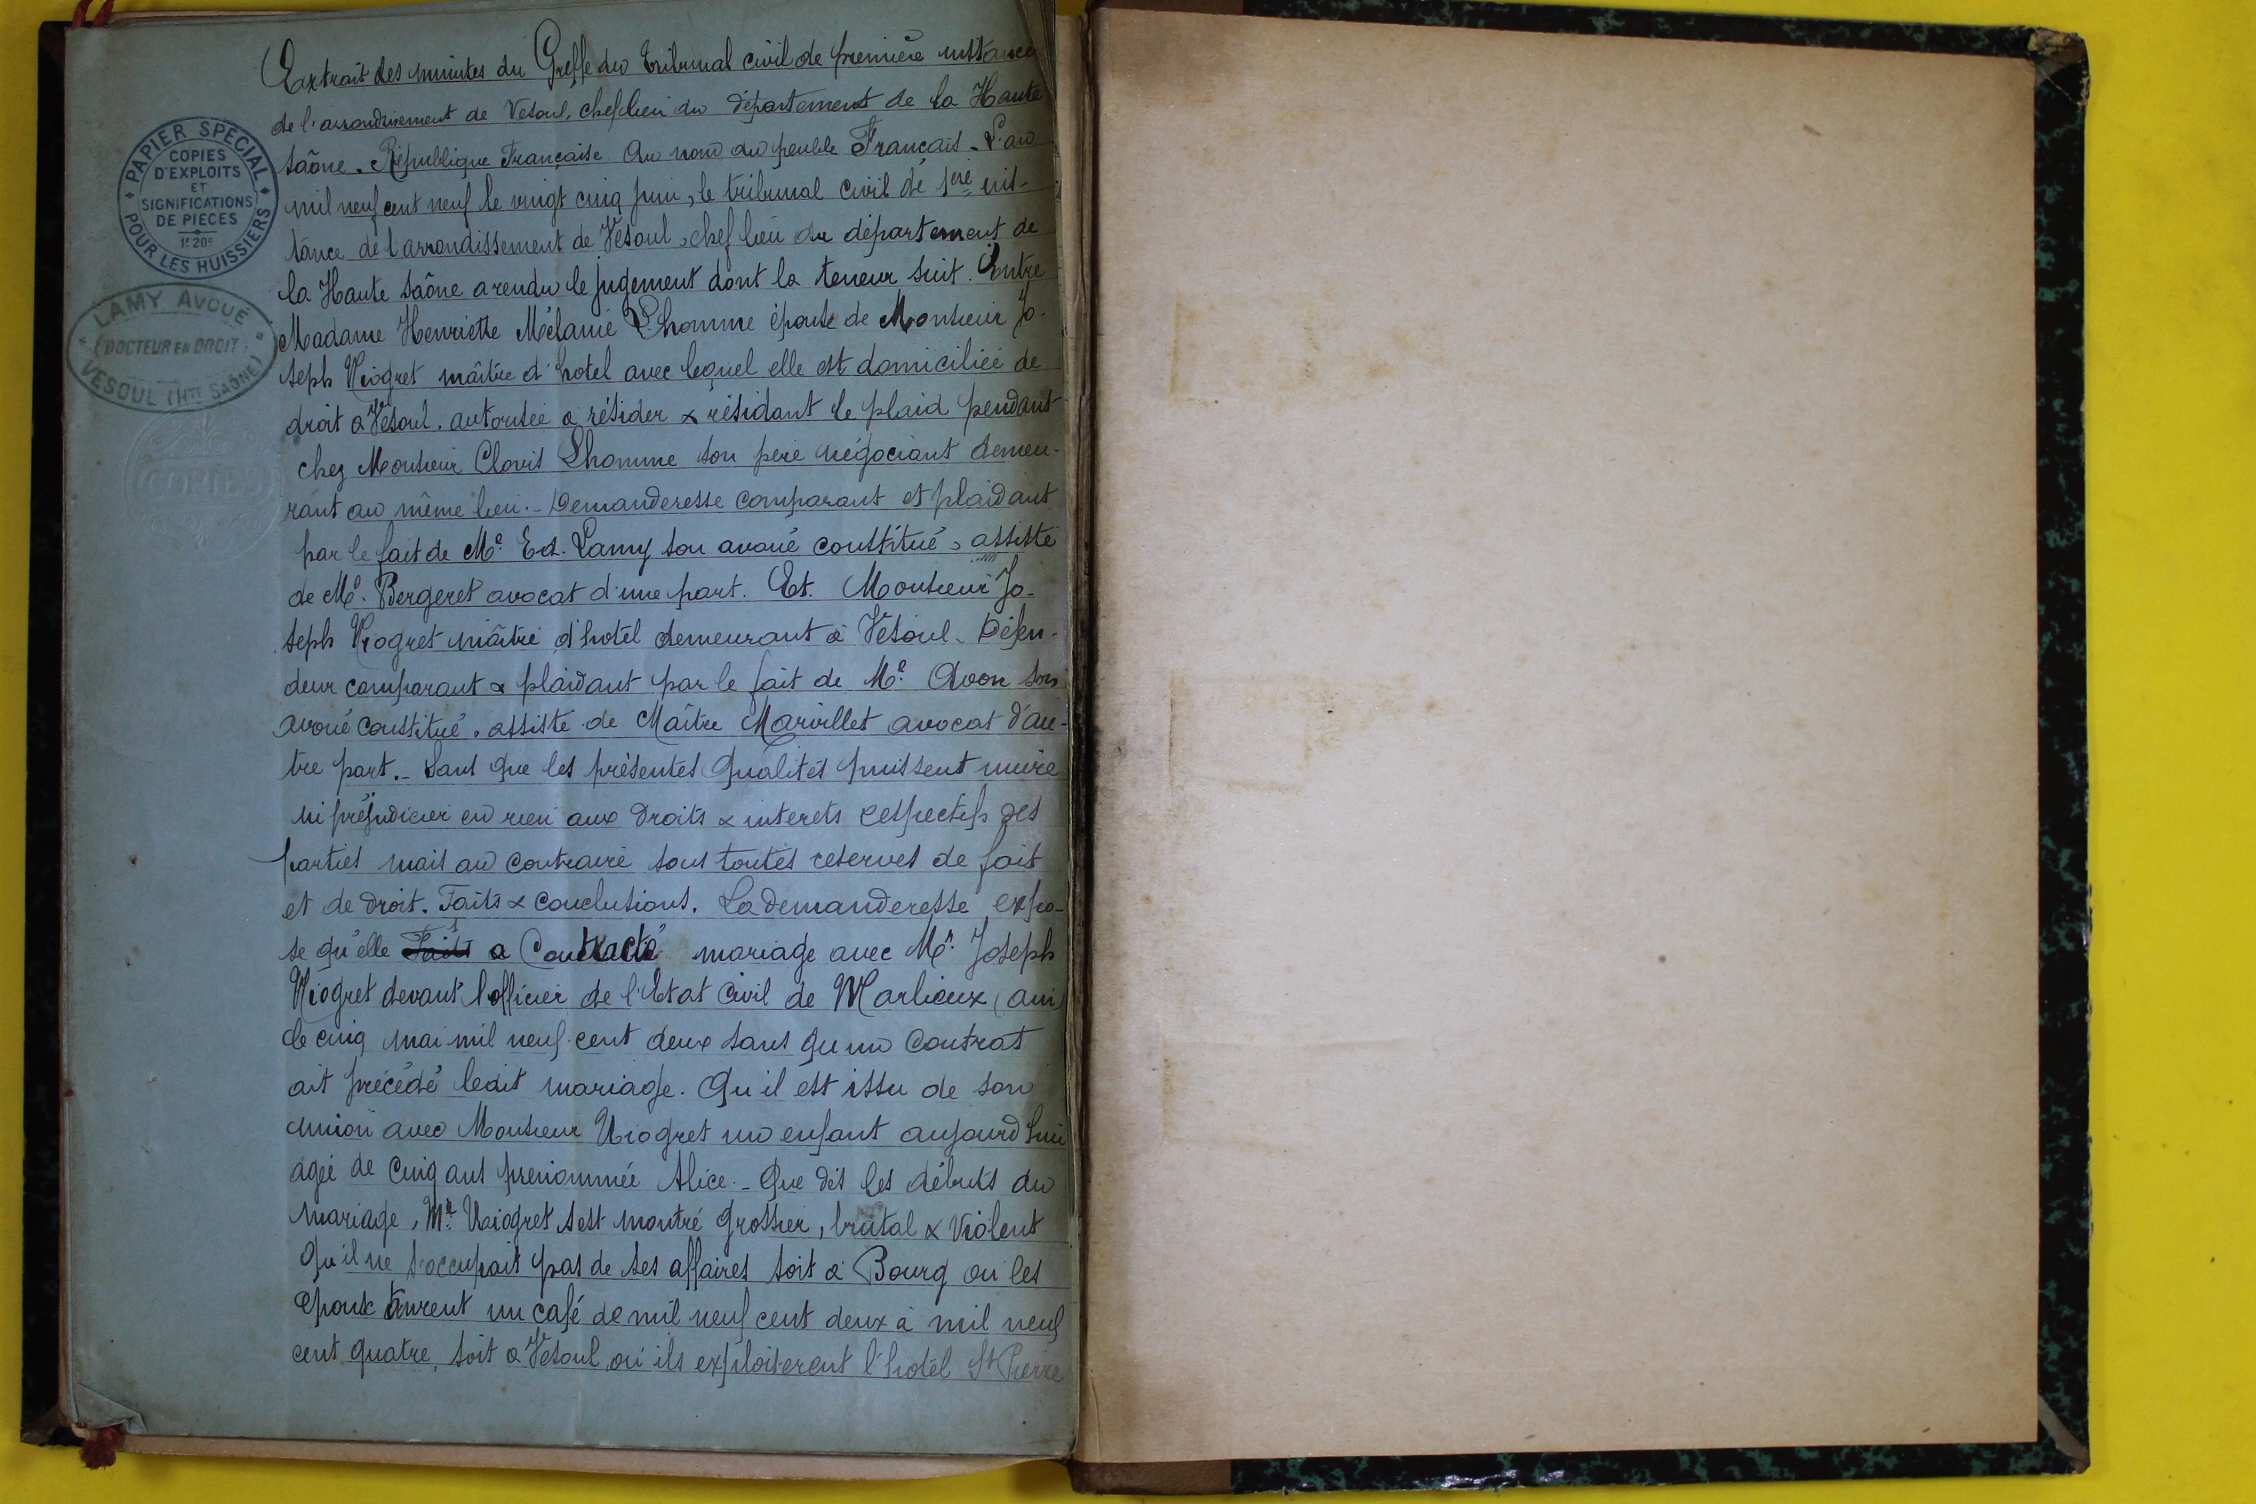 PAPIER SPÉCIAL
COPIES
D'EXPLOITS
ET
SIGNIFICATIONS
DE PIECES
1f 20c
POUR LES HUISSIERS
LAMY AVOUÉ
DOCTEUR EN DROIT
VESOUL (HTE SAÔNE)
COPIES
Extrait des minutes du Greffe du Tribunal civil de première instance
de l'arrondissement de Vesoul, chef lieu du département de la Haute
Saône. République Française Au nom du peuple Français. L'an
mil neuf cent neuf le vingt cinq juin, le tribunal civil de 1ere ins-
tance de l'arrondissement de Vesoul, chef lieu du département de
la Haute Saône a rendu le jugement dont la teneur suit. Entre
Madame Henriette Mélanie Lhomme épouse de Monsieur Jo-
seph Niogret maître d'hotel avec lequel elle est domiciliée de
droit à Vesoul. autorisée à résider & résidant le plaid pendant
chez Monsieur Clovis Lhomme son père négociant demeu-
rant au même lieu. - Demanderesse comparant et plaidant
par le fait de Me. Ed. Lamy son avoué constitué, assisté
de Me. Bergeret avocat d'une part. Et. Monsieur Jo-
seph Niogret maître d'hotel demeurant à Vesoul. Défen-
deur comparant & plaidant par le fait de Me. Avon son
avoué constitué, assisté de Maître Marvillet avocat d'au-
tre part. - Sans que les présentes qualités puissent nuire
ni préjudicier en rien aux droits & interets respectifs des
parties mais au contraire sous toutes reserves de fait
et de droit. Faits & conclusions. La demanderesse expo-
se qu'elle Faits a Contracté mariage avec Mr. Joseph
Niogret devant l'officier de l'Etat Civil de Marlieux (ain)
le cinq mai mil neuf cent deux sans qu'un contrat
ait précédé ledit mariage. Qu'il est issu de son
union avec Monsieur Niogret un enfant aujourd'hui
agée de cinq ans prénommée Alice. - Que dès les débuts du
mariage, Mr. Niogret s'est montré grossier, brutal & violent
qu'il ne s'occupait pas de ses affaires soit à Bourg ou les
epoux tinrent un café de mil neuf cent deux à mil neuf
cent quatre, soit à Vesoul ou ils exploiterent l'hotel St Pierre